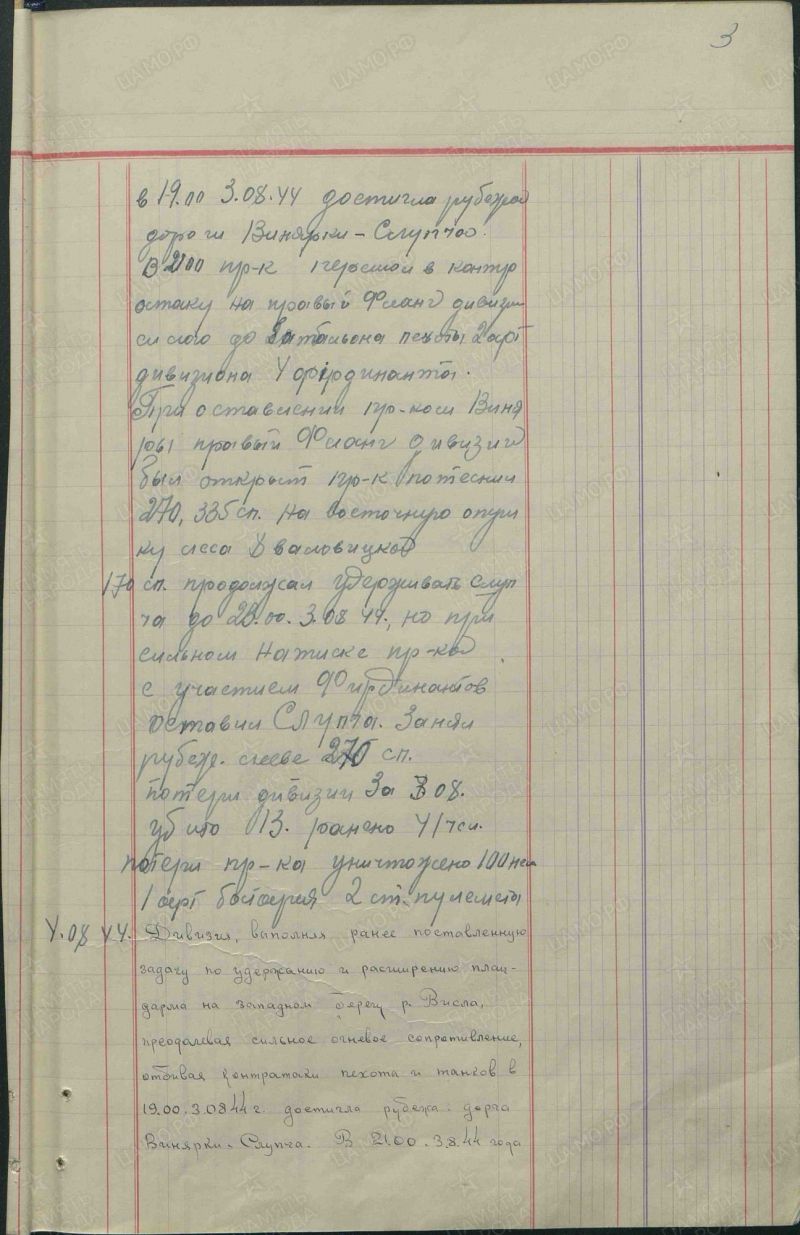 3
в 19.00 3.08.44 достигла рубежа
дороги Винярки - Слупчоо.
В 2100 пр-к перешол в контр
отаку на правый Фланг дивизи
силою до батальона пехоты 2 арт
дивизиона 4 фирдинанта.
При оставлении пр-ком Виня
ры правый Фланг дивизии
был открыт пр-к потеснил
270, 335 сп. на восточную опуш
ку леса Хваловицкой
170 сп. продолжал удерживать Слуп
ча до 23.00. 3.08 44., но при
сильном натиске пр-ка
с участием Фирдинантов
оставил Слупча. Занял
рубеж. левее 270 сп.
потери дивизии За 3 08.
убито 13. ранено 41 чел.
потери пр-ка уничтожено 100 нем
1 арт батарея 2 ст. пулемета
4.08 44. Дивизия, выполняя ранее поставленную
задачу по удержанию и расширению плац-
дарма на западном берегу р. Висла,
преодалевая сильное огневое сопротивление,
отбивая контратаки пехоты и танков в
19.00. 3.08 44 г. достигла рубежа: дорга
Винярки - Слупча. В 21.00. 3.8.44 года